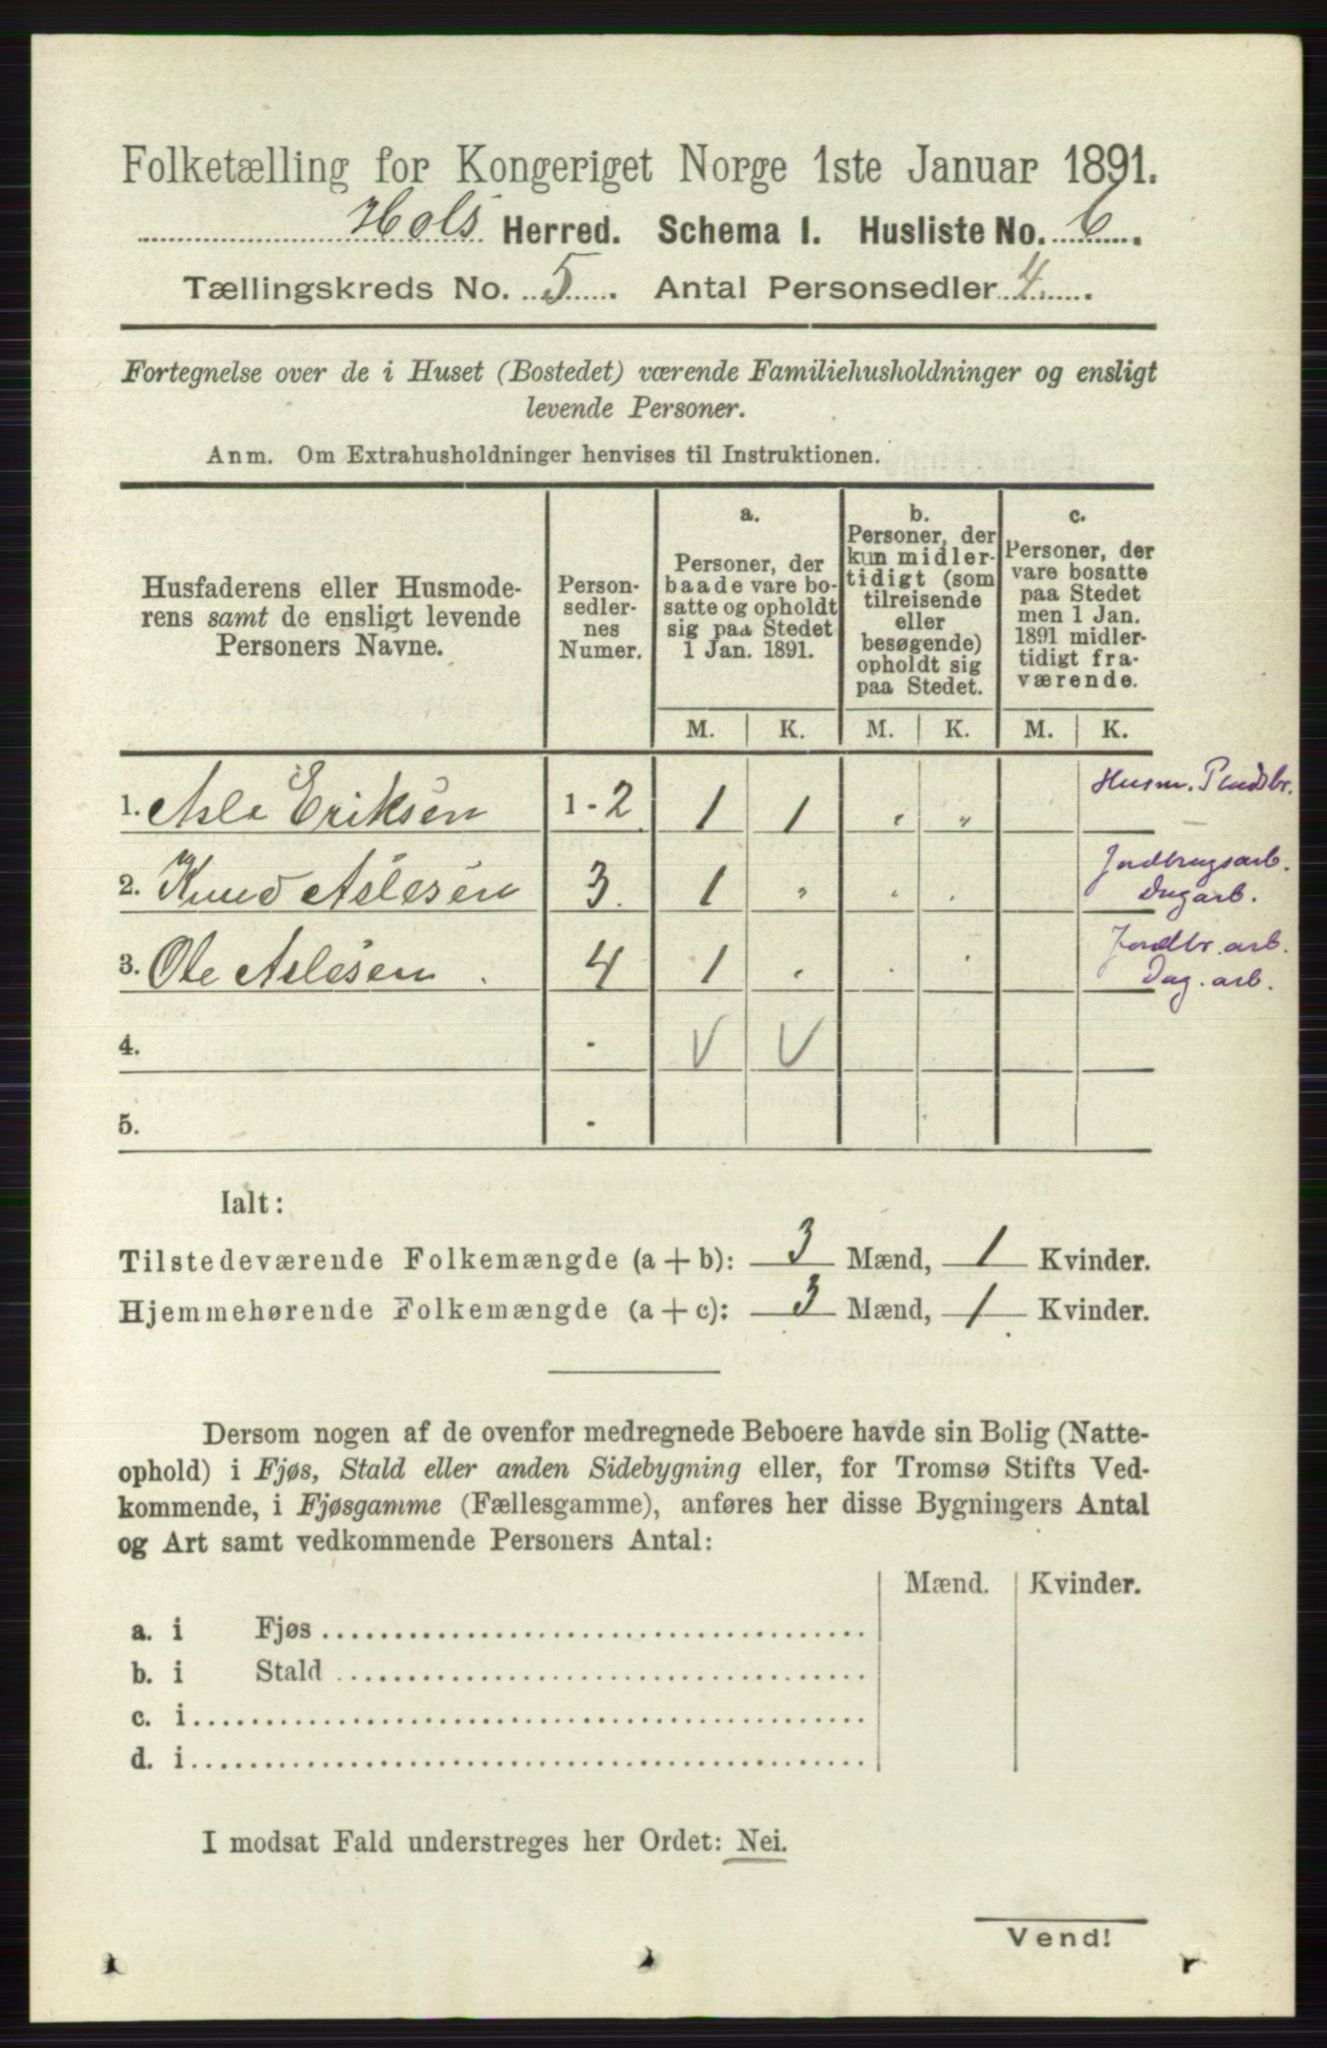 Folketælling for Kongeriget Norge 1ste Januar 1891.
Hols Herred. Schema I. Husliste No. 6.
Tællingskreds No. 5. Antal Personsedler 4.
Fortegnelse over de i Huset (Bostedet) værende Familiehusholdninger og ensligt
levende Personer.
Anm. Om Extrahusholdninger henvises til Instruktionen.
Husfaderens eller Husmode-
rens samt de ensligt levende
Personers Navne.
Person-
sedler-
nes
Numer.
a.
Personer, der
baade vare bo-
satte og opholdt
sig paa Stedet
1 Jan. 1891.
b.
Personer, der
kun midler-
tidigt (som
tilreisende
eller
besøgende)
opholdt sig
paa Stedet.
c.
Personer, der
vare bosatte
paa Stedet
men 1 Jan.
1891 midler-
tidigt fra-
værende.
M. K. M. K. M. K.
1. Asle Eriksen 1-2 1 1 " " Husm. Pladsbr.
2. Knud Aslesen 3. 1 " " . Jordbrugsarb.
Dagarb.
3. Ole Aslesen. 4 1 . . . Jordbr. arb.
Dag. arb.
4. - V V
5. -
Ialt:
Tilstedeværende Folkemængde (a + b): 3 Mænd, 1 Kvinder.
Hjemmehørende Folkemængde (a + c): 3 Mænd, 1 Kvinder.
Dersom nogen af de ovenfor medregnede Beboere havde sin Bolig (Natte-
ophold) i Fjøs, Stald eller anden Sidebygning eller, for Tromsø Stifts Ved-
kommende, i Fjøsgamme (Fællesgamme), anføres her disse Bygningers Antal
og Art samt vedkommende Personers Antal:
Mænd. Kvinder.
a. i Fjøs
b. i Stald
c. i
d. i
I modsat Fald understreges her Ordet: Nei.
Vend!